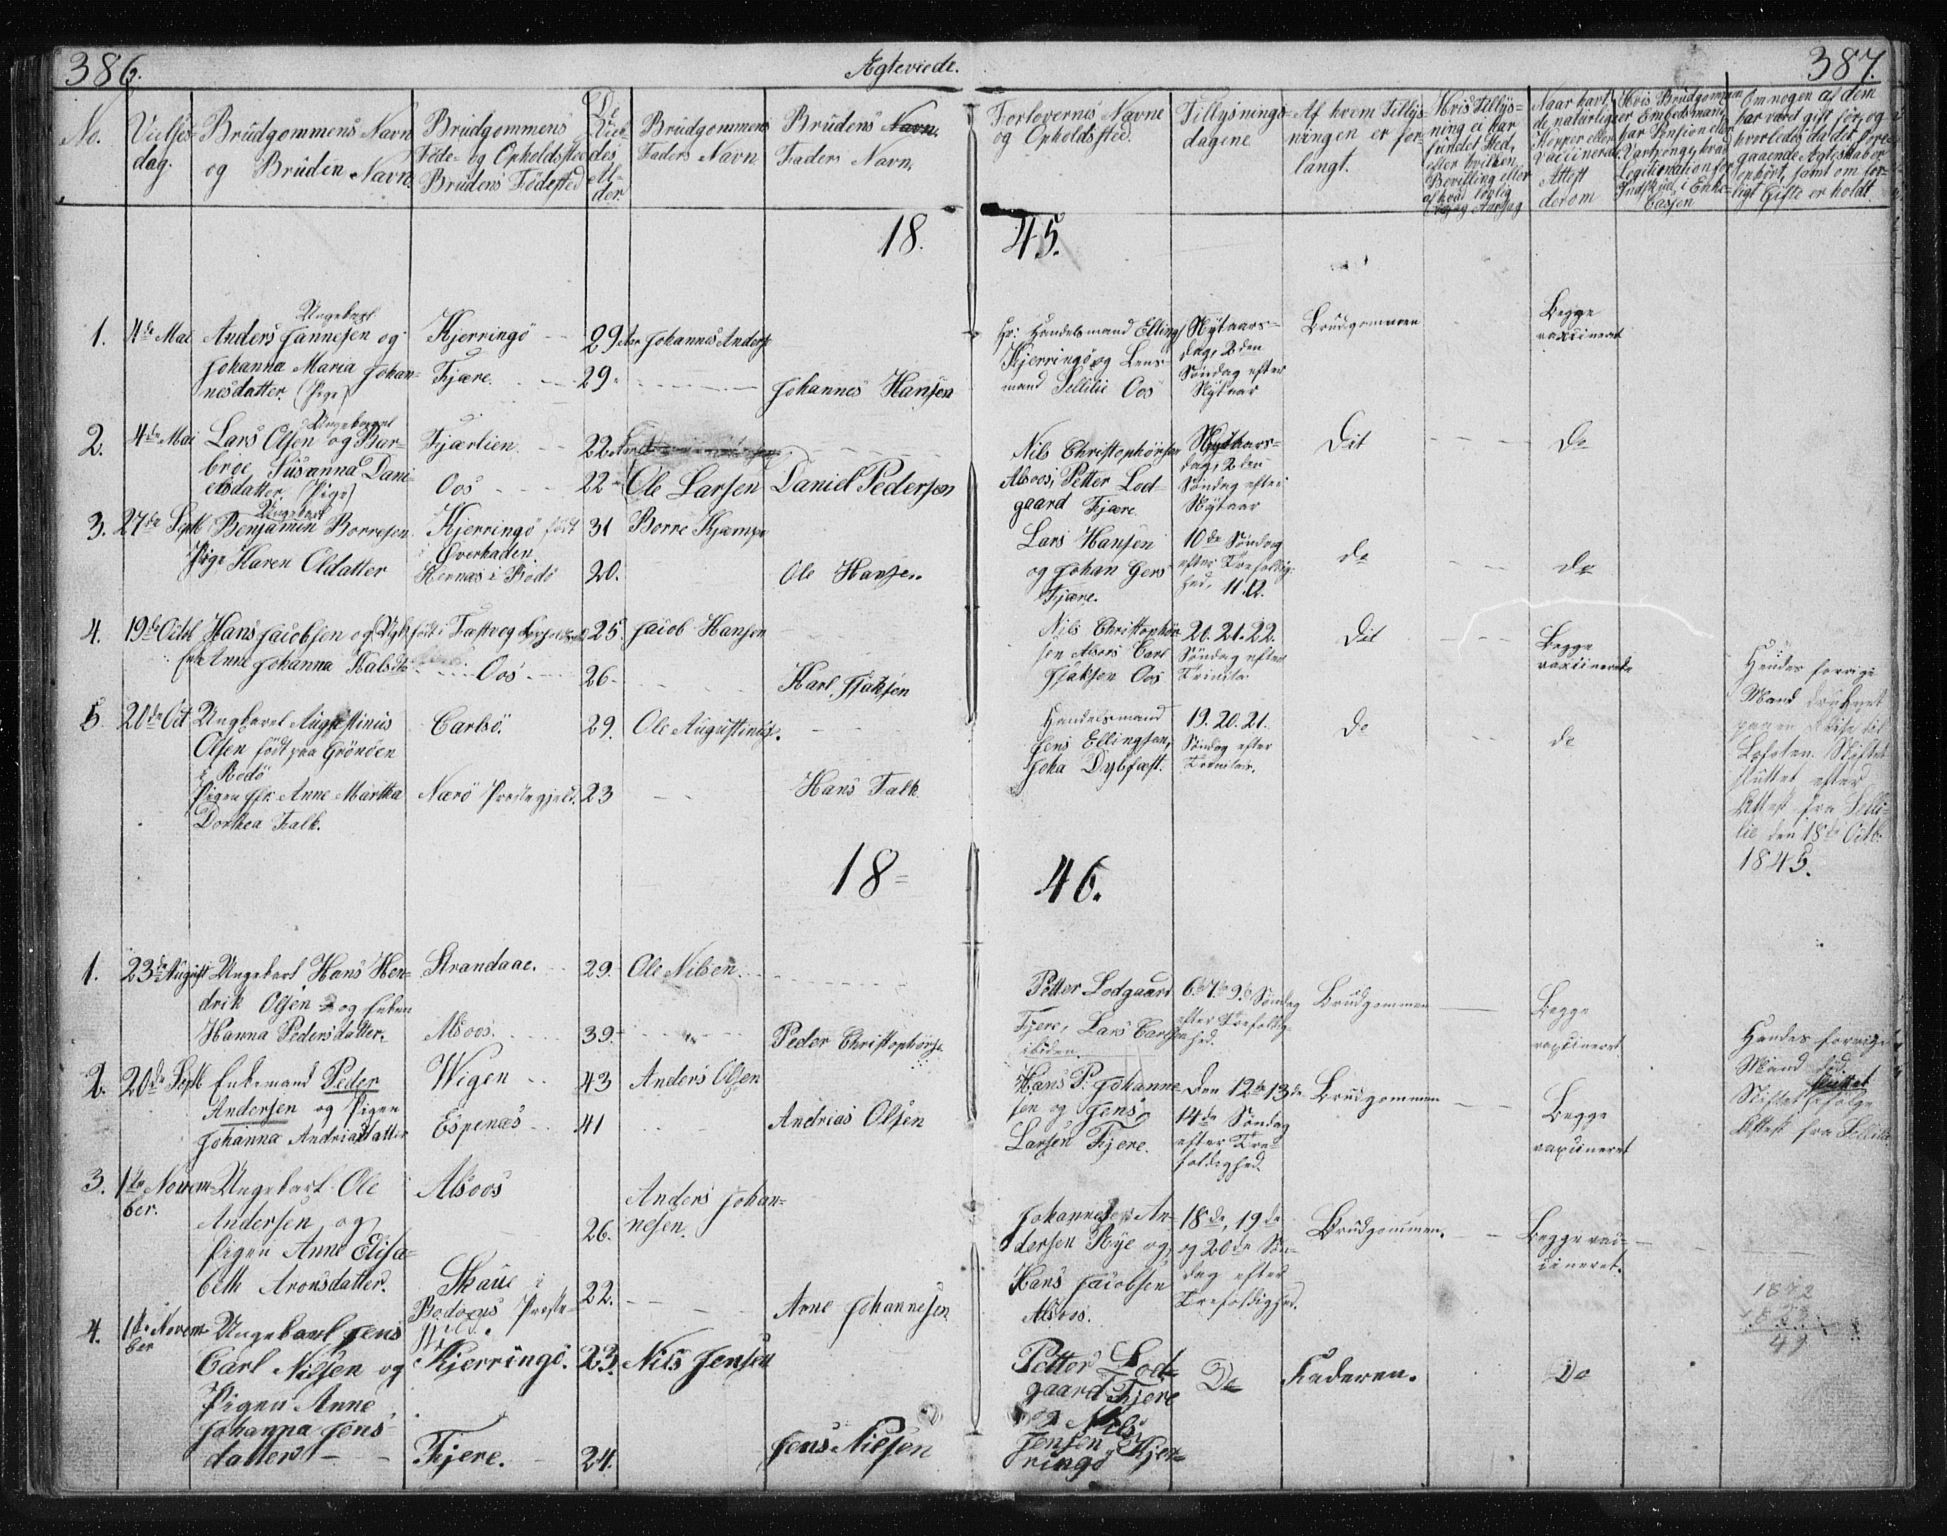 386.
Ægteviede.
387.
No.
Vielses-
dag.
Brudgommens Navn
og Bruden Navn.
Brudgommens
Føde- og Opholdssted
Brudens Fødested
De
Vied-
des
All-
der.
Brudgommens
Faders Navn
Brudens Navn.
Faders Navn.
Forlovernes Navne
og Opholdsted.
Tillysnings-
dagene
Af hvem Tillys-
ningen er for-
langt.
Hvis Tillys-
ning ei har
fundet Sted,
efter hvilken
Bevilling eller
af hvad lovlig
Aarsag
Naar havt
de naturlige
Kopper eller
Vaccinerede
Attest
derom
Hvis Brudgommen
er Embedsmand,
har Pension eller
Vartpenge, hvad
Legitimation for
Indskud i Enke-
Cassen
Om nogen af dem
har været gift før, og
hvorledes da det fore-
gaaende Ægteskab er
ophørt, samt om lov-
ligt Skifte er holdt
18. 45.
1. 4de Mai
Ungekarl
Anders Jannesen og
Johanna Maria Johan-
nesdatter. (Pige)
Kjerringö
Fjære.
29 Aar
29.
Johannes Anders
Johannes Hansen
Hr: Handelsmand Elling
Kjerringö og Lens-
mand Sellilie Oos
Nytaars-
dag, 2den
Søndag efter
Nytaar
Brudgommen
Begge
vaxcineret
2. 4de Mai
Ungekarl
Lars Olsen og Bar-
broe Susanna Dani-
elsdatter. (Pige)
Fjærlien
Oos
22
22
Ole Larsen
Daniel Pedersen
Nils Christophersen
Alsoos, Petter Lod-
gaard Fjære.
Nytaars-
dag, 2den
Søndag efter
Nytaar
Dit
do
3. 27de Septb
Ungekarl
Benjamin Borresen
Pige Karen Oldatter
Kjerringö født
i Øverhaden
Hernæs i Bodö
31
20.
Borre Kjæmpe
Ole Hansen.
Lars Hansen
og Johan Gers
Fjære.
10de Søndag
efter Trefoldig-
hed, 11. 12.
do
do
4. 19de Octb
Hans Jacobsen og
Anne Johanna
født i Tastvog
Oos
25
26
Jacob Hansen
Karl Isaksen
Nils Christopher-
sen Alsoos Carl
Isaksen Oos
20. 21. 22.
Søndag efter
Trinita
Dit
Begge
vaxcinerede
Hendes forrige
Mand druknet
paa en Reise til
Lofoten. Skiftet
sluttet efter
Attest fra Selli-
lie den 18de Octb.
1845.
5 20de Oct
Ungkarl Augustinus
Olsen født paa Grönöen
i Rodö
Pigen Anne Martha
Dorthea Falk.
Carlsö.
Nærö Prestegjeld.
29.
23
Ole Augustinus.
Hans Falk
Handelsmand
Jens Ellingsen,
Joha Dybfæst.
19. 20. 21.
Søndag efter
Trinitas.
do
do
18 46.
1. 23de August
Ungekarl Hans Hen-
drik Olsen og Enken
Hanna Pedersdatter.
Strandaae.
Alsoos.
29.
39.
Ole Nilsen.
Peder Christophers
Petter Lodgaard
Fjere, Lars Carlsen
ibidem.
6te 7de 9de Søndag
efter Trefoldig-
hed.
Brudgommen
Begge
vaxcineret
Hendes forrige
Mand død.
Skiftet sluttet
ifølge
Attest fra Sellilie
2. 20de Septb
Enkemand Peder
Andersen og Pigen
Johanna Andriasdatter
Wigen
Espenæs
43
41
Anders Olsen
Andrias Olsen
Hans P. Johanne-
sen og Jens
Larsen Fjere.
Den 12te 13de
14de Søndag
efter Tre-
foldighed.
Brudgommen
Begge
vaxcineret
3. 1ste Novem-
ber.
Ungekarl Ole
Andersen og
Pigen Anne Elisa-
beth Aronsdatter.
Alsoos
Skaue i
Bodoens Preste-
gjeld.
26.
22.
Anders Johan-
nesen.
Arne Johannesen.
Johannes An-
dersen Rye og
Hans Jacobsen
Alsoos.
18de, 19de
og 20de Søn-
dag efter
Trefoldighed.
Brudgommen.
Begge vac-
cineret.
4. 1ste Novem-
ber
Ungekarl Jens
Carl Nilsen og
Pigen Anne
Johanna Jens-
datter
Kjerringö.
Fjere.
23.
24.
Nils Jensen
Jens Nielsen
Petter Lod-
gaard Fjere
og Nels
Jensen Kjer-
ringö
Do
Faderen.
Do
49